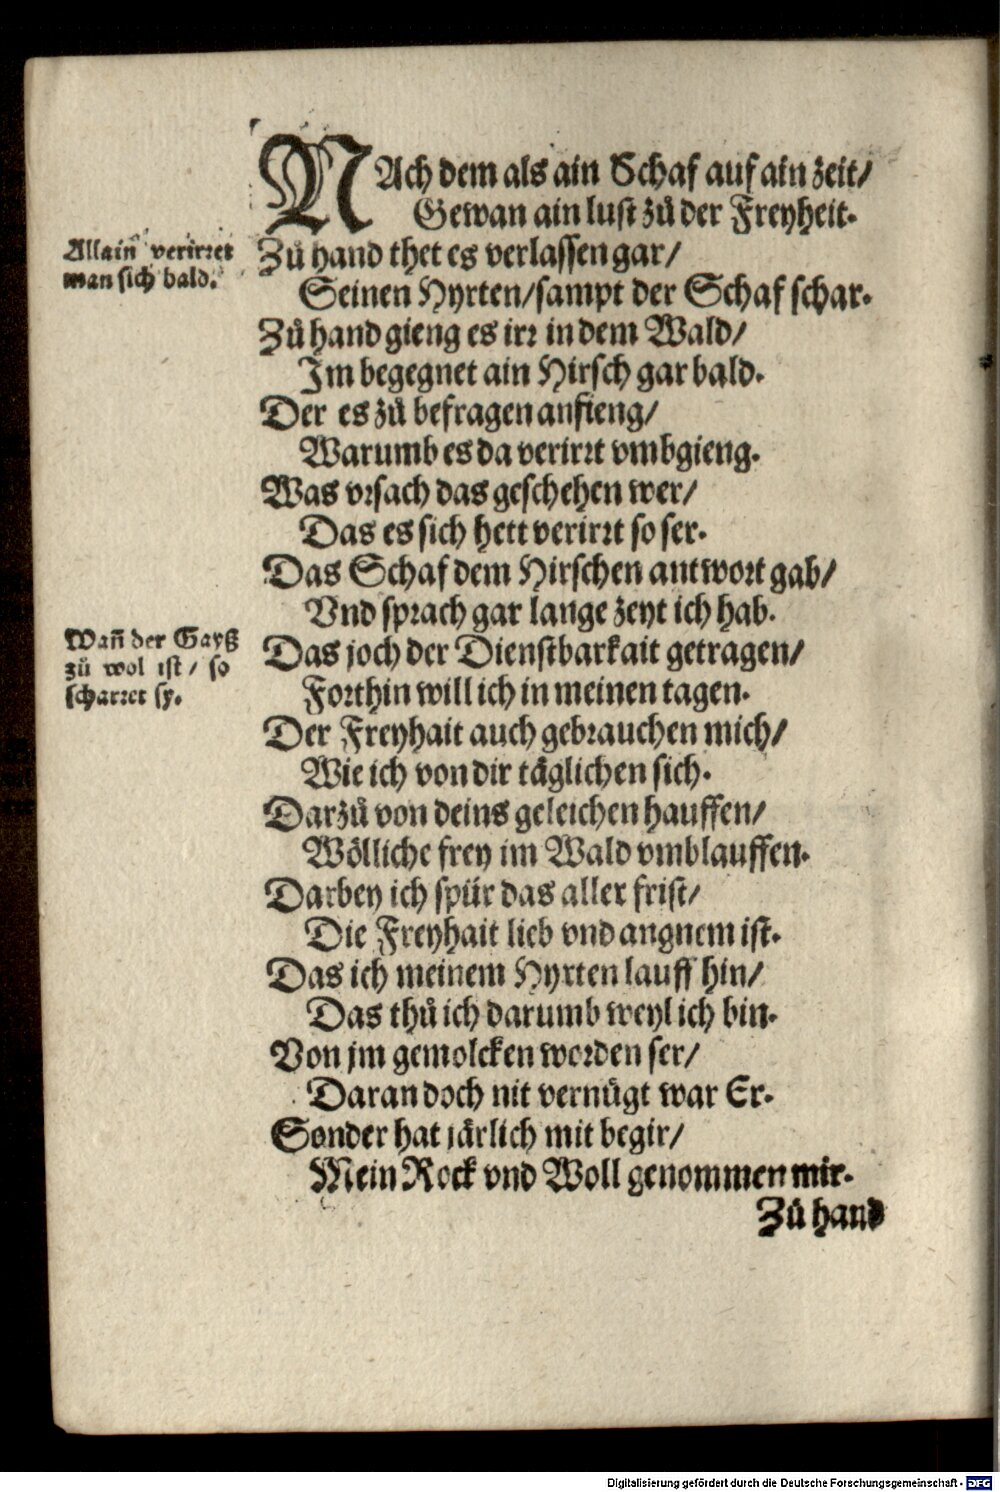 NAch dem als ain Schaf auf ain zeit/
Gewan ain lust zů der Freyheit.
Allain verirret
man sich bald.
Zů hand thet es verlassen gar/
Seinen Hyrten/sampt der Schaf schar.
Zů hand gieng es irr in dem Wald/
Im begegnet ain Hirsch gar bald.
Der es zů befragen anfieng/
Warumb es da verirrt vmbgieng.
Was vrsach das geschehen wer/
Das es sich hett verirrt so ser.
Das Schaf dem Hirschen antwort gab/
Vnd sprach gar lange zeyt ich hab.
Wañ der Gayß
zů wol ist / so
scharret sy.
Das joch der Dienstbarkait getragen/
Forthin will ich in meinen tagen.
Der Freyhait auch gebrauchen mich/
Wie ich von dir täglichen sich.
Darzů von deins geleichen hauffen/
Wölliche frey im Wald vmblauffen.
Darbey ich spür das aller frist/
Die Freyhait lieb vnd angnem ist.
Das ich meinem Hyrten lauff hin/
Das thů ich darumb weyl ich bin.
Von jm gemolcken worden ser/
Daran doch nit vernügt war Er.
Sonder hat järlich mit begir/
Mein Rock vnd Woll genommen mir.
Zů hand
Digitalisierung gefördert durch die Deutsche Forschungsgemeinschaft - DFG